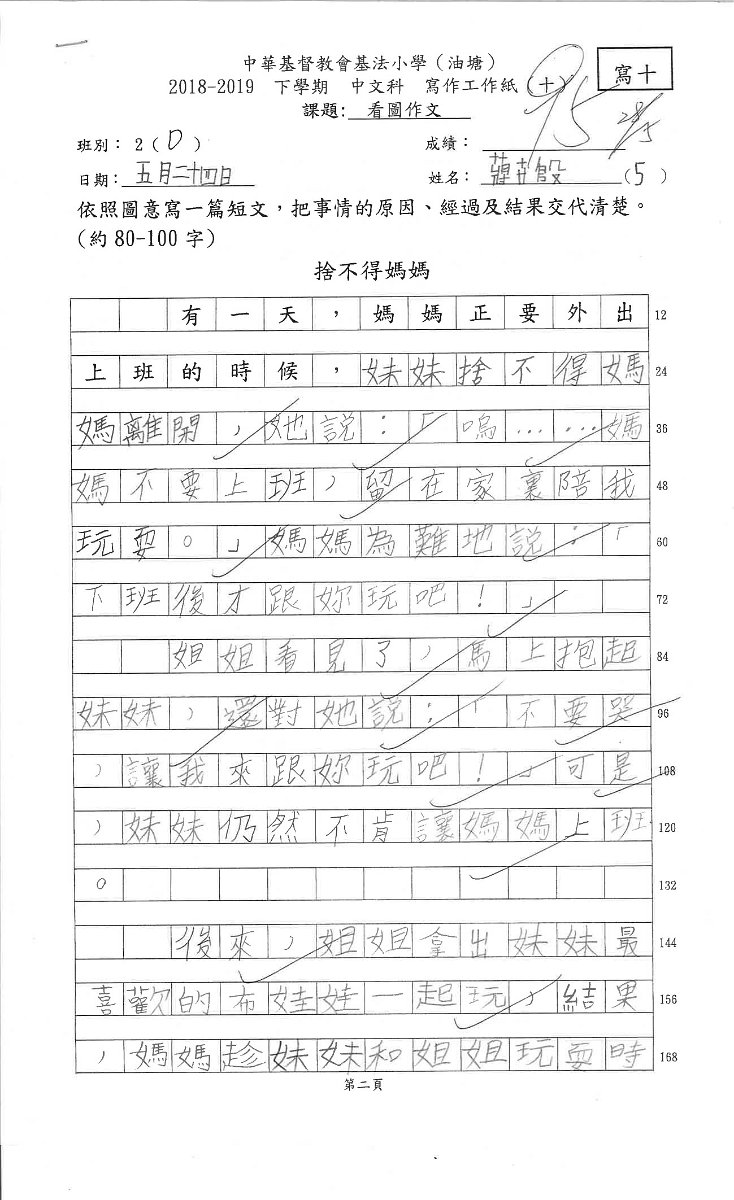 中華基督教會基法小學（油塘）
2018-2019 下學期 中文科 寫作工作紙（十）
寫十
95
28/5
課題：看圖作文
班別： 2 ( D )
成績：
日期： 五月二十四日
姓名： (5)
依照圖意寫一篇短文，把事情的原因、經過及結果交代清楚。
(約 80-100 字)
捨不得媽媽
有一天，媽媽正要外出 12
上班的時候，妹妹捨不得媽 24
媽離開，她說：「嗚……媽 36
媽不要上班，留在家裏陪我 48
玩耍。」媽媽為難地說：「 60
下班後才跟妳玩吧！」 72
姐姐看見了，馬上抱起 84
妹妹，還對她說：「不要哭 96
，讓我來跟妳玩吧！」可是 108
，妹妹仍然不肯讓媽媽上班 120
。 132
後來，姐姐拿出妹妹最 144
喜歡的布娃娃一起玩，結果 156
，媽媽趁妹妹和姐姐玩耍時 168
第二頁